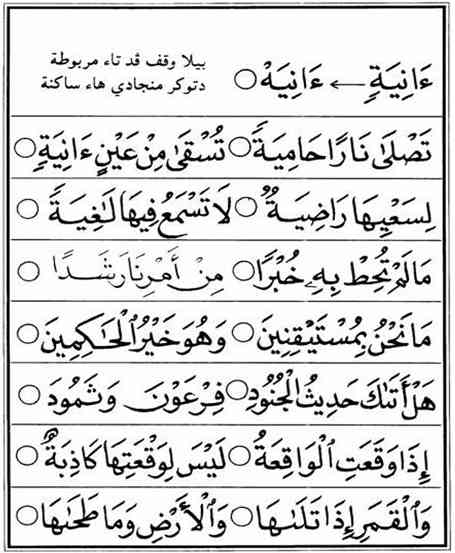 ءَانِيَةٍ ← ءَانِيَهْ ○ بيلا وقف قد تاء مربوطة
دتوكر منجادي هاء ساكنة
تَصْلَىٰ نَارًا حَامِيَةً ○ تُسْقَىٰ مِنْ عَيْنٍ ءَانِيَةٍ ○
لِسَعْيِهَا رَاضِيَةٌ ○ لَا تَسْمَعُ فِيهَا لَٰغِيَةً ○
مَا لَمْ تُحِطْ بِهِ خُبْرًا ○ مِنْ أَمْرِنَا رَشَدًا ○
مَا نَحْنُ بِمُسْتَيْقِنِينَ ○ وَهُوَ خَيْرُ ٱلْحَٰكِمِينَ ○
هَلْ أَتَىٰكَ حَدِيثُ الْجُنُودِ ○ فِرْعَوْنَ وَثَمُودَ ○
إِذَا وَقَعَتِ الْوَاقِعَةُ ○ لَيْسَ لِوَقْعَتِهَا كَاذِبَةٌ ○
وَٱلْقَمَرِ إِذَا تَلَىٰهَا ○ وَٱلْأَرْضِ وَمَا طَحَىٰهَا ○